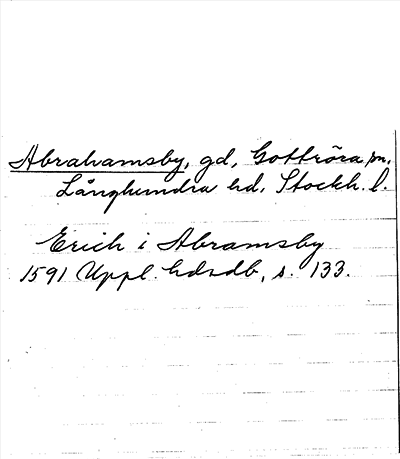 Abrahamsby, gd, Gottröra sn,
Långhundra hd, Stockh. l.
Erich i Abramsby
1591 Uppl. hdsdb, s. 133.